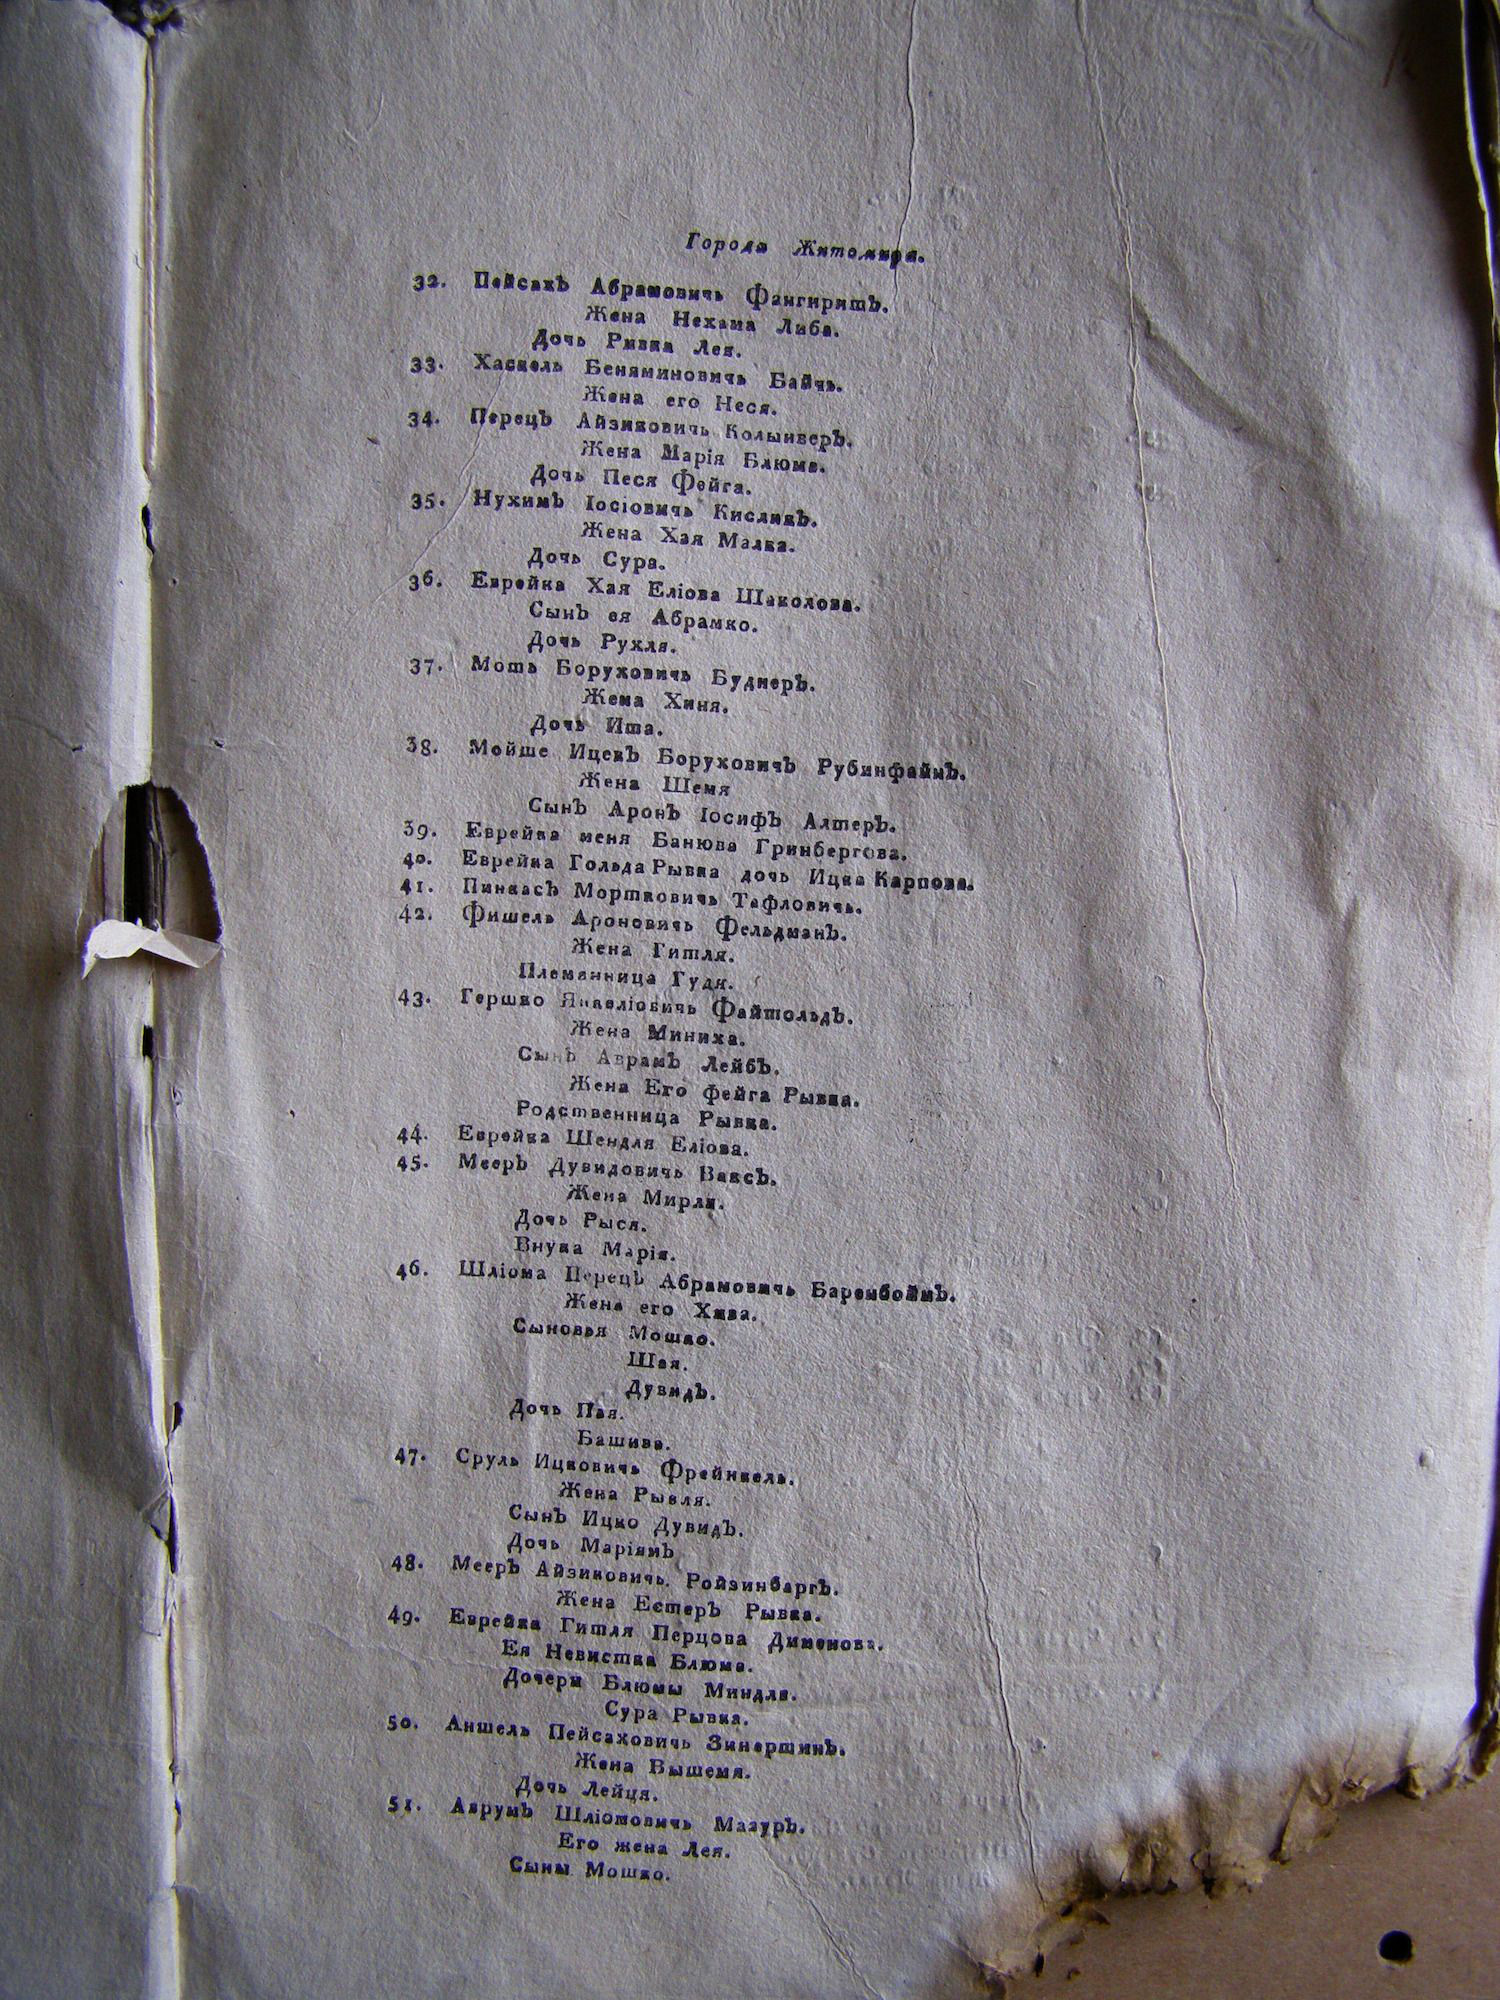 Города Житомира.
32. Пейсахъ Абрамовичь Фангиритъ.
Жена Нехама Либа.
Дочь Ривка Лея.
33. Хаскель Беняминовичь Байчь.
Жена его Неся.
34. Перецъ Айзиковичь Колынверъ.
Жена Марія Блюма.
Дочь Песя Фейга.
35. Нухимъ Іосіовичь Кисликъ.
Жена Хая Малка.
Дочь Сура.
36. Еврейка Хая Еліова Шаколова.
Сынъ ея Абрамко.
Дочь Рухля.
37. Моть Боруховичь Буднеръ.
Жена Хиня.
Дочь Ита.
38. Мойше Ицекъ Боруховичъ Рубинфайнъ.
Жена Шемя
Сынъ Аронъ Іосифъ Алтеръ.
39. Еврейка меня Банюва Гринбергова.
40. Еврейка Гольда Рывка дочь Ицка Карпова.
41. Пинкасъ Мортковичь Тафловичь.
42. Фишель Ароновичь Фельдманъ.
Жена Гитля.
Племянница Гудя.
43. Гершко Янкеліовичь Файтольдъ.
Жена Миниха.
Сынъ Аврамъ Лейбъ.
Жена Его фейга Рывка.
Родственница Рывка.
44. Еврейка Шендля Еліова.
45. Мееръ Дувидовичь Ваксъ.
Жена Мирля.
Дочь Рыся.
Внука Марія.
46. Шліома Перецъ Абрамовичь Барембоймъ.
Жена его Хива.
Сыновья Мошко.
Шая.
Дувидъ.
Дочь Пая.
Башива.
47. Сруль Ицковичь Фрейнкель.
Жена Рывля.
Сынъ Ицко Дувидъ.
Дочь Маріямъ
48. Мееръ Айзиковичь Ройзинбаргъ.
Жена Естеръ Рывка.
49. Еврейка Гитля Перцова Дименова.
Ея Невистка Блюма.
Дочери Блюмы Миндля.
Сура Рывка.
50. Аншель Пейсаховичь Зинерштинъ.
Жена Вышемя.
Дочь Лейця.
51. Аврумъ Шліомовичь Мазуръ.
Его жена Лея.
Сыны Мошко.